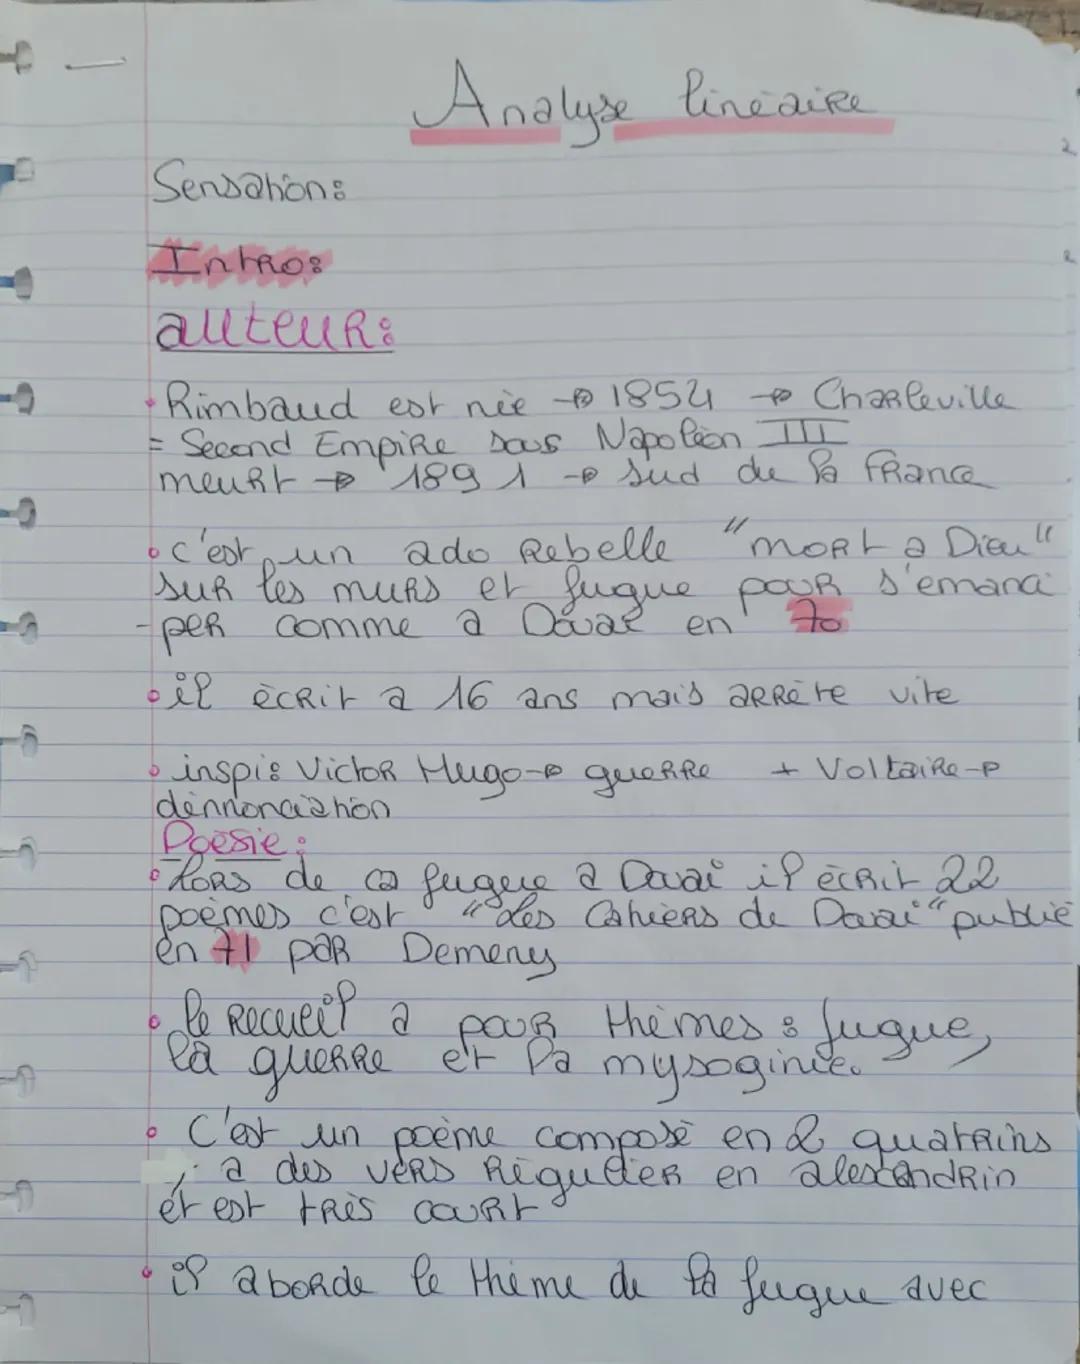 Analyse linéaire
Sensation:
Intro:
auteur:
Rimbaud est née → 1854 → Charleville
= Second Empire sous Napoléon III
meurt → 1891 → sud de la France
c'est un ado rebelle "mort a Dieu"
sur les murs et fugue pour s'emanci
-per comme a Douai en 70
il écrit a 16 ans mais arrête vite
inspi: Victor Hugo → guerre + Voltaire →
dénnonciation
Poésie:
Lors de ca fugue a Douai il écrit 22
poèmes c'est "les Cahiers de Douai" publié
en 71 par Demeny
le recueil a pour thèmes : fugue,
la guerre et la mysoginie.
C'est un poème composé en 2 quatrains
, a des vers régulier en alexandrin
et est très court
il aborde le thème de la fugue avec